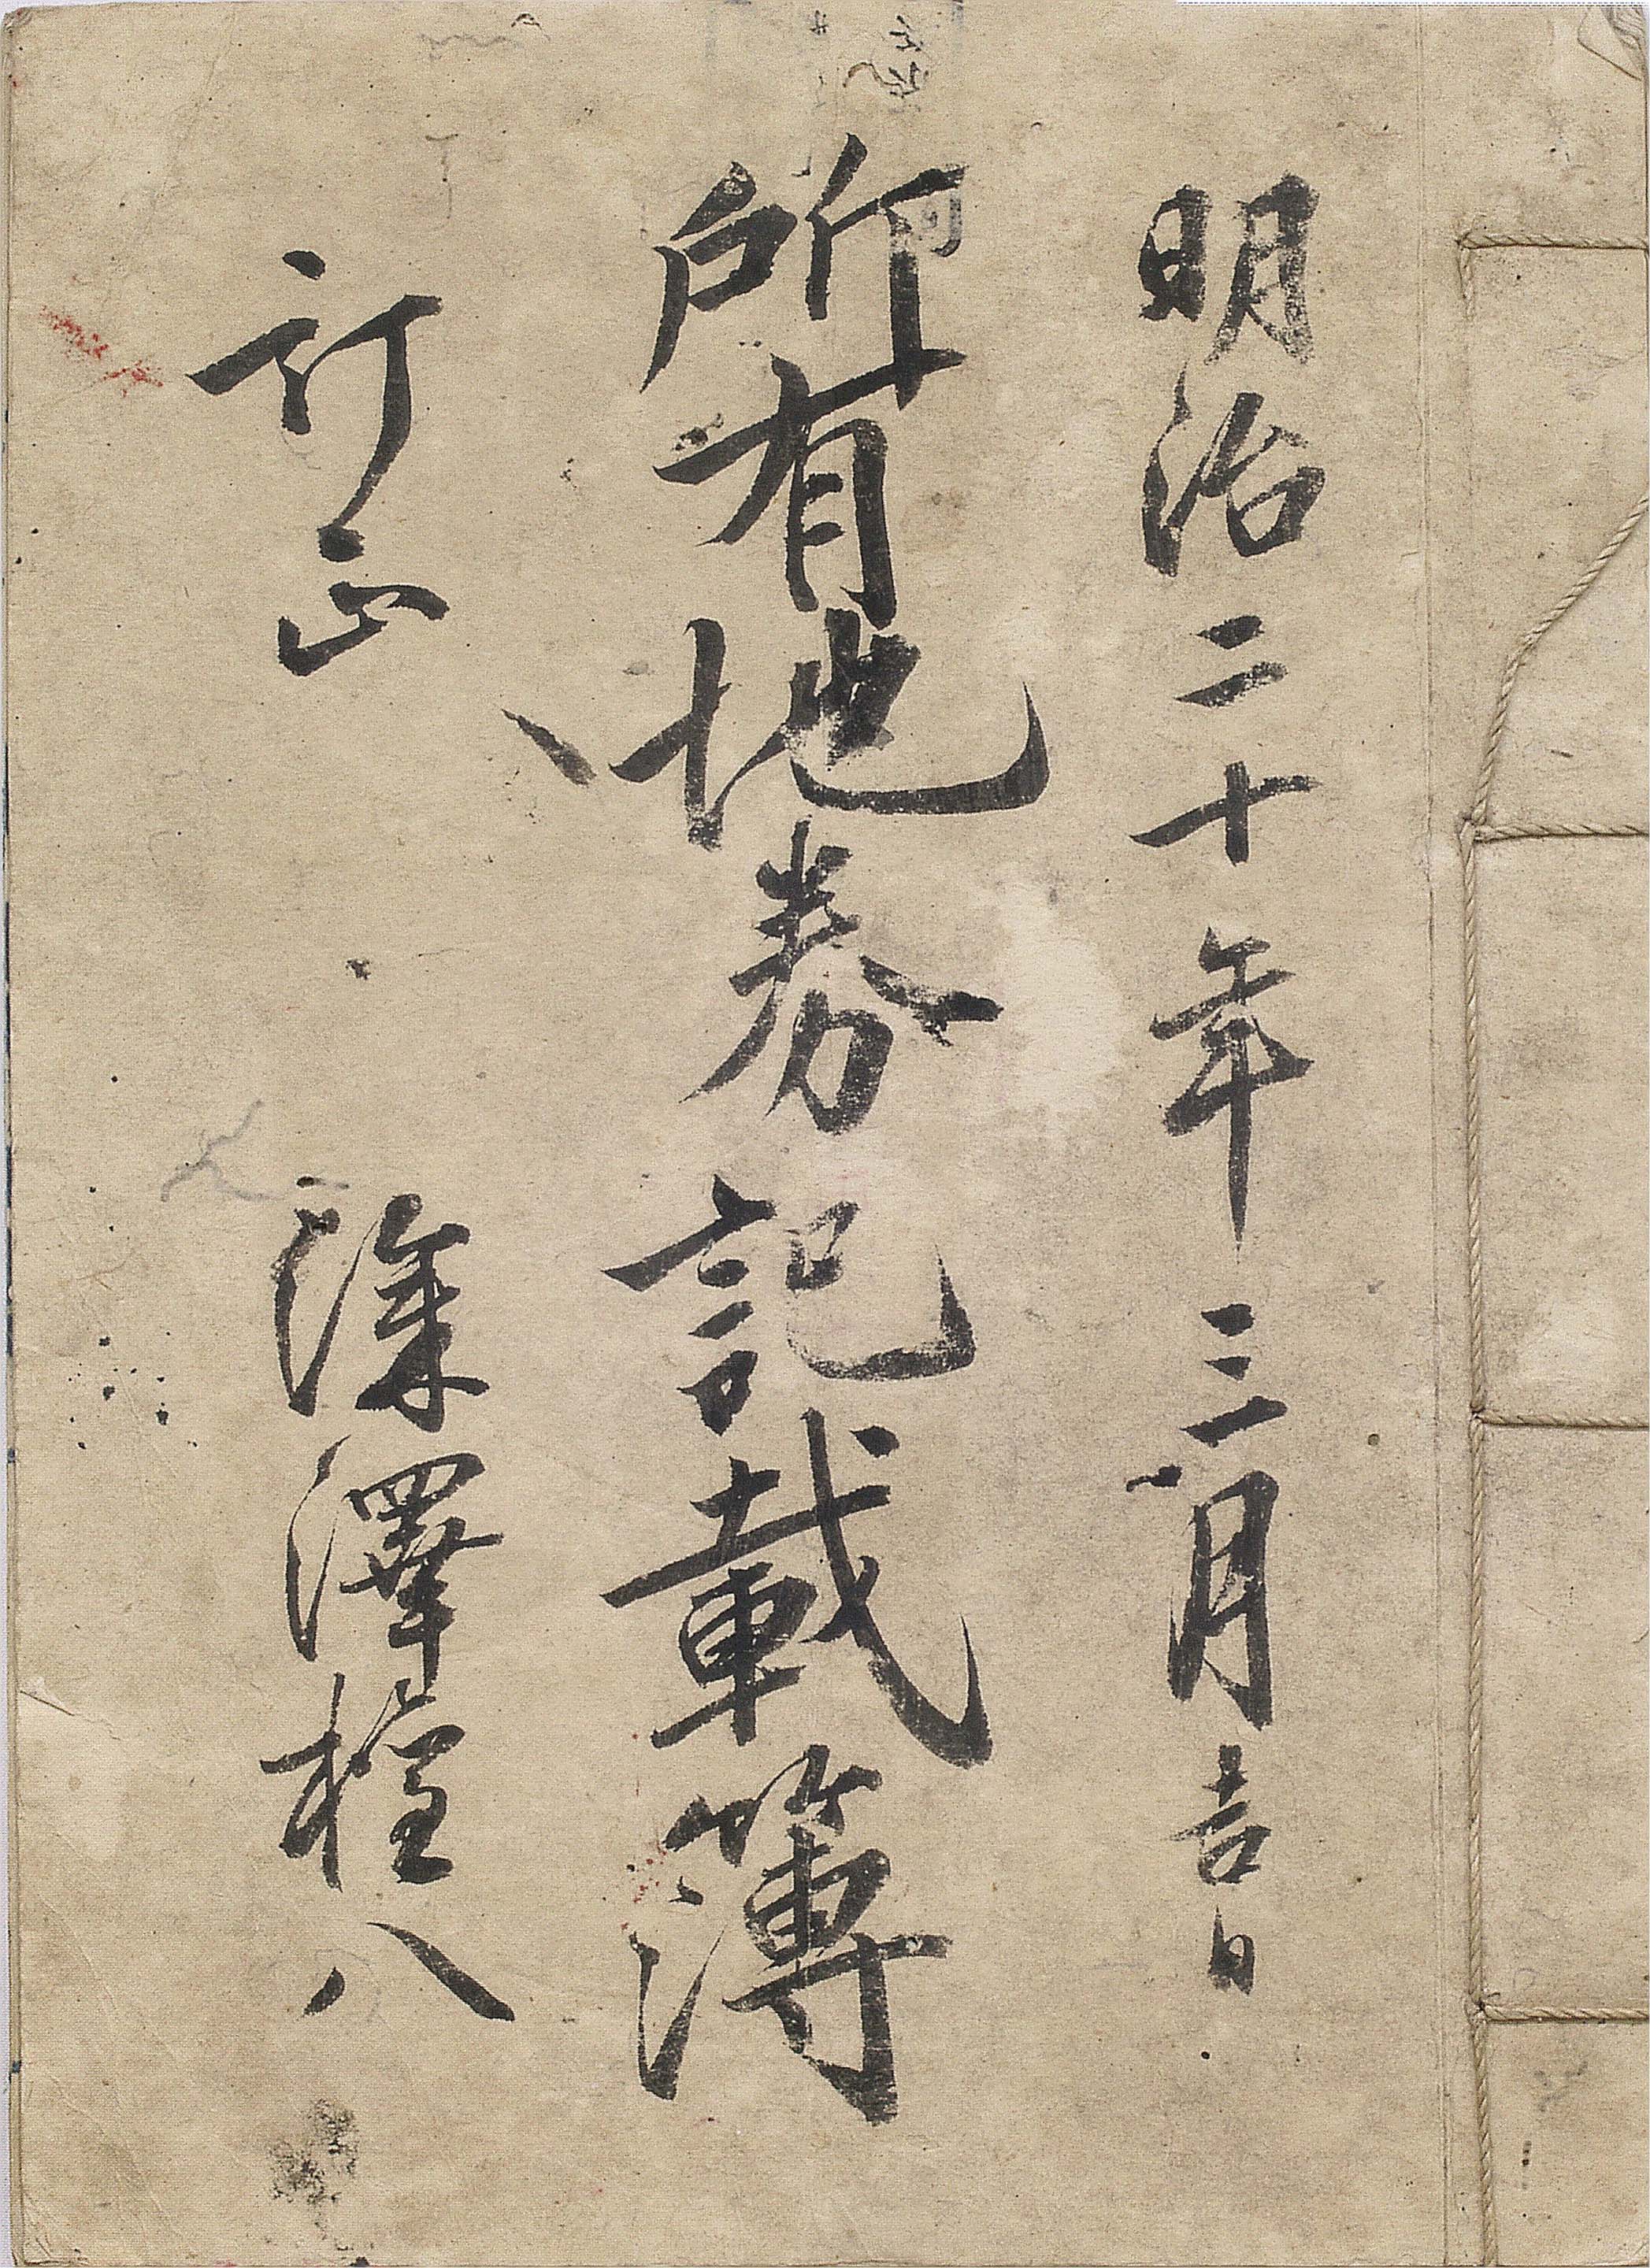 明治二十年三月吉日
所有地券記載簿
訂正
深澤権八